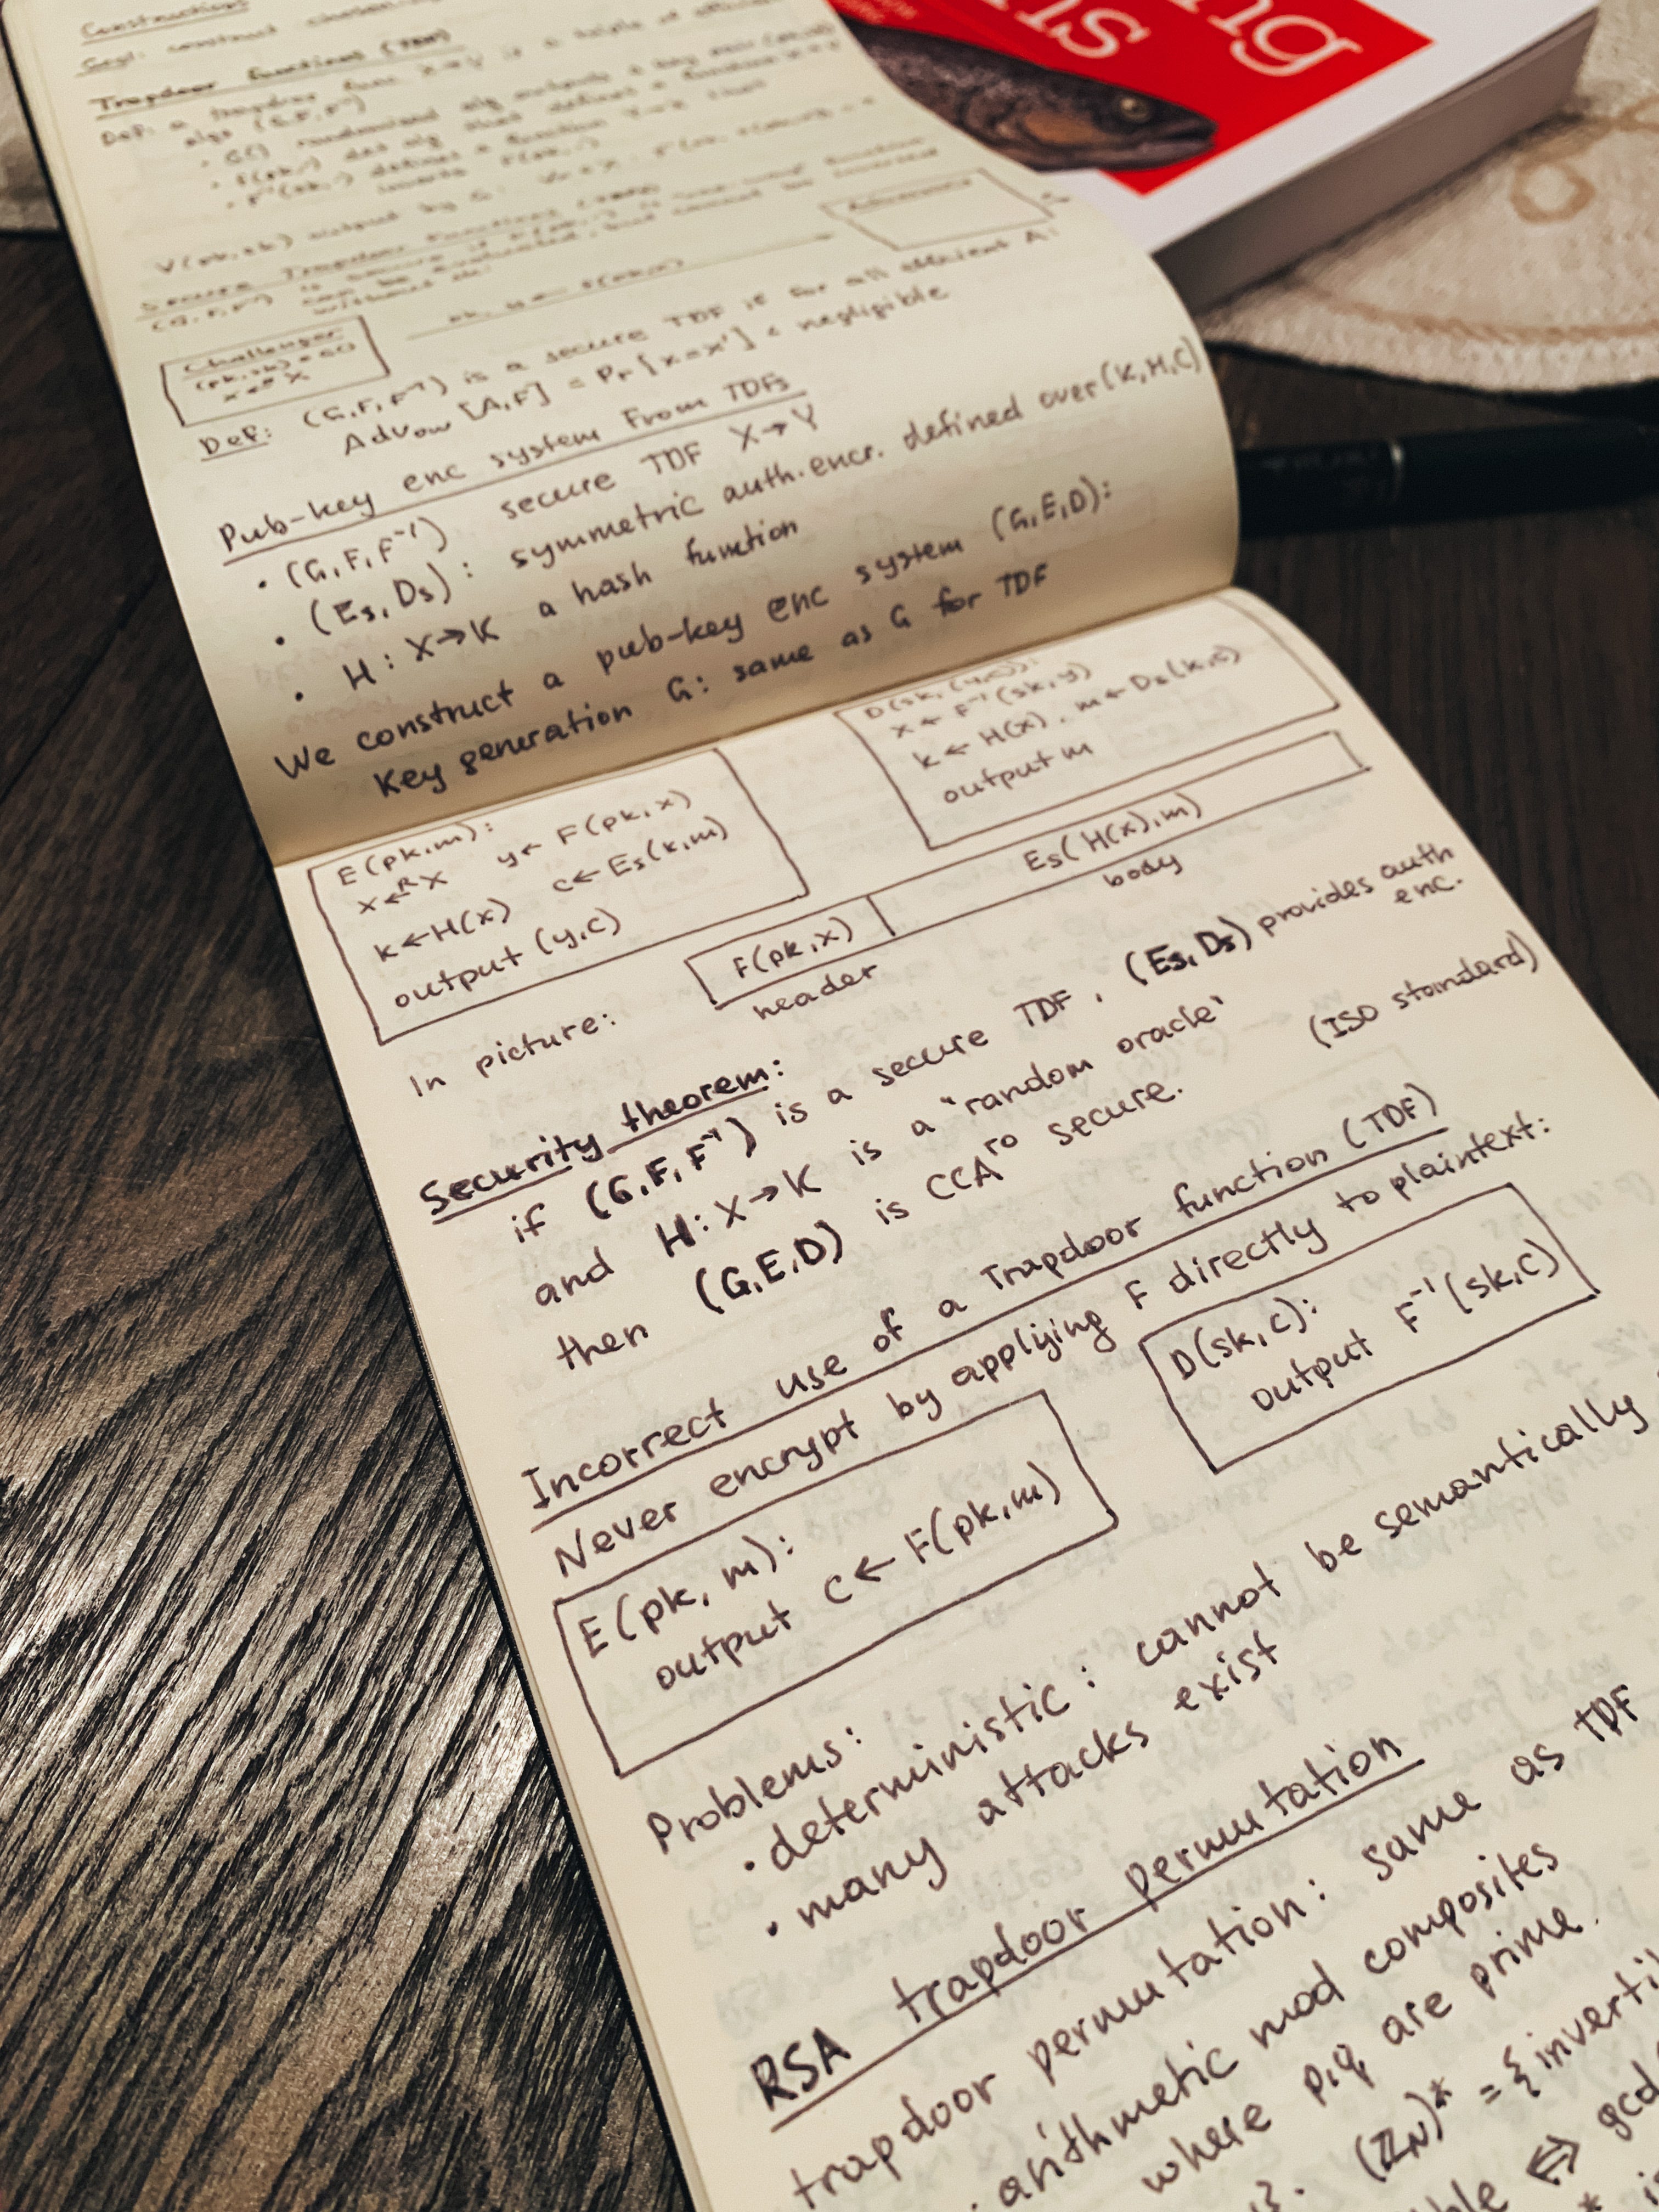 ng
ns
Constructions
Goal: construct
Trapdoor functions (TDF)
Def: a trapdoor func X→Y is a triple of efficient
algs (G,F,F⁻¹)
• G() randomized alg outputs a key pair (pk,sk)
• F(pk,·) det alg that defines a function X→Y
• F⁻¹(sk,·) defines a function Y→X that
inverts F(pk,·)
∀(pk,sk) output by G
Secure Trapdoor Functions (TDFs)
(G,F,F⁻¹) is secure if F(pk,·) is "one-way" function
can be evaluated, but cannot be inverted
without sk
Challenger
(pk,sk)←G()
x ←ᴿ X
Adversary
Def: (G,F,F⁻¹) is a secure TDF if for all efficient A:
Advow [A,F] = Pr[x=x'] < negligible
Pub-key enc system from TDFs
• (G,F,F⁻¹) secure TDF X→Y
• (Es, Ds): symmetric auth.encr. defined over (K,M,C)
• H: X→K a hash function
We construct a pub-key enc system (G,E,D):
Key generation G: same as G for TDF
E(pk,m):
x ←ᴿ X y← F(pk,x)
k←H(x) c←Es(k,m)
output (y,c)
D(sk,(y,c)):
x← F⁻¹(sk,y)
k← H(x), m← Ds(k,c)
output m
In picture:
F(pk,x) Es(H(x),m)
header body
Security theorem:
if (G,F,F⁻¹) is a secure TDF, (Es,Ds) provides auth enc.
and H: X→K is a "random oracle"
then (G,E,D) is CCAʳᵒ secure. (ISO standard)
Incorrect use of a Trapdoor function (TDF)
Never encrypt by applying F directly to plaintext:
E(pk, m):
output c← F(pk,m)
D(sk,c):
output F⁻¹(sk,c)
Problems:
• deterministic: cannot be semantically
• many attacks exist
RSA trapdoor permutation
trapdoor permutation: same as TDF
• arithmetic mod composites
where p,q are prime.
(ℤN)* = {
⟺ gcd